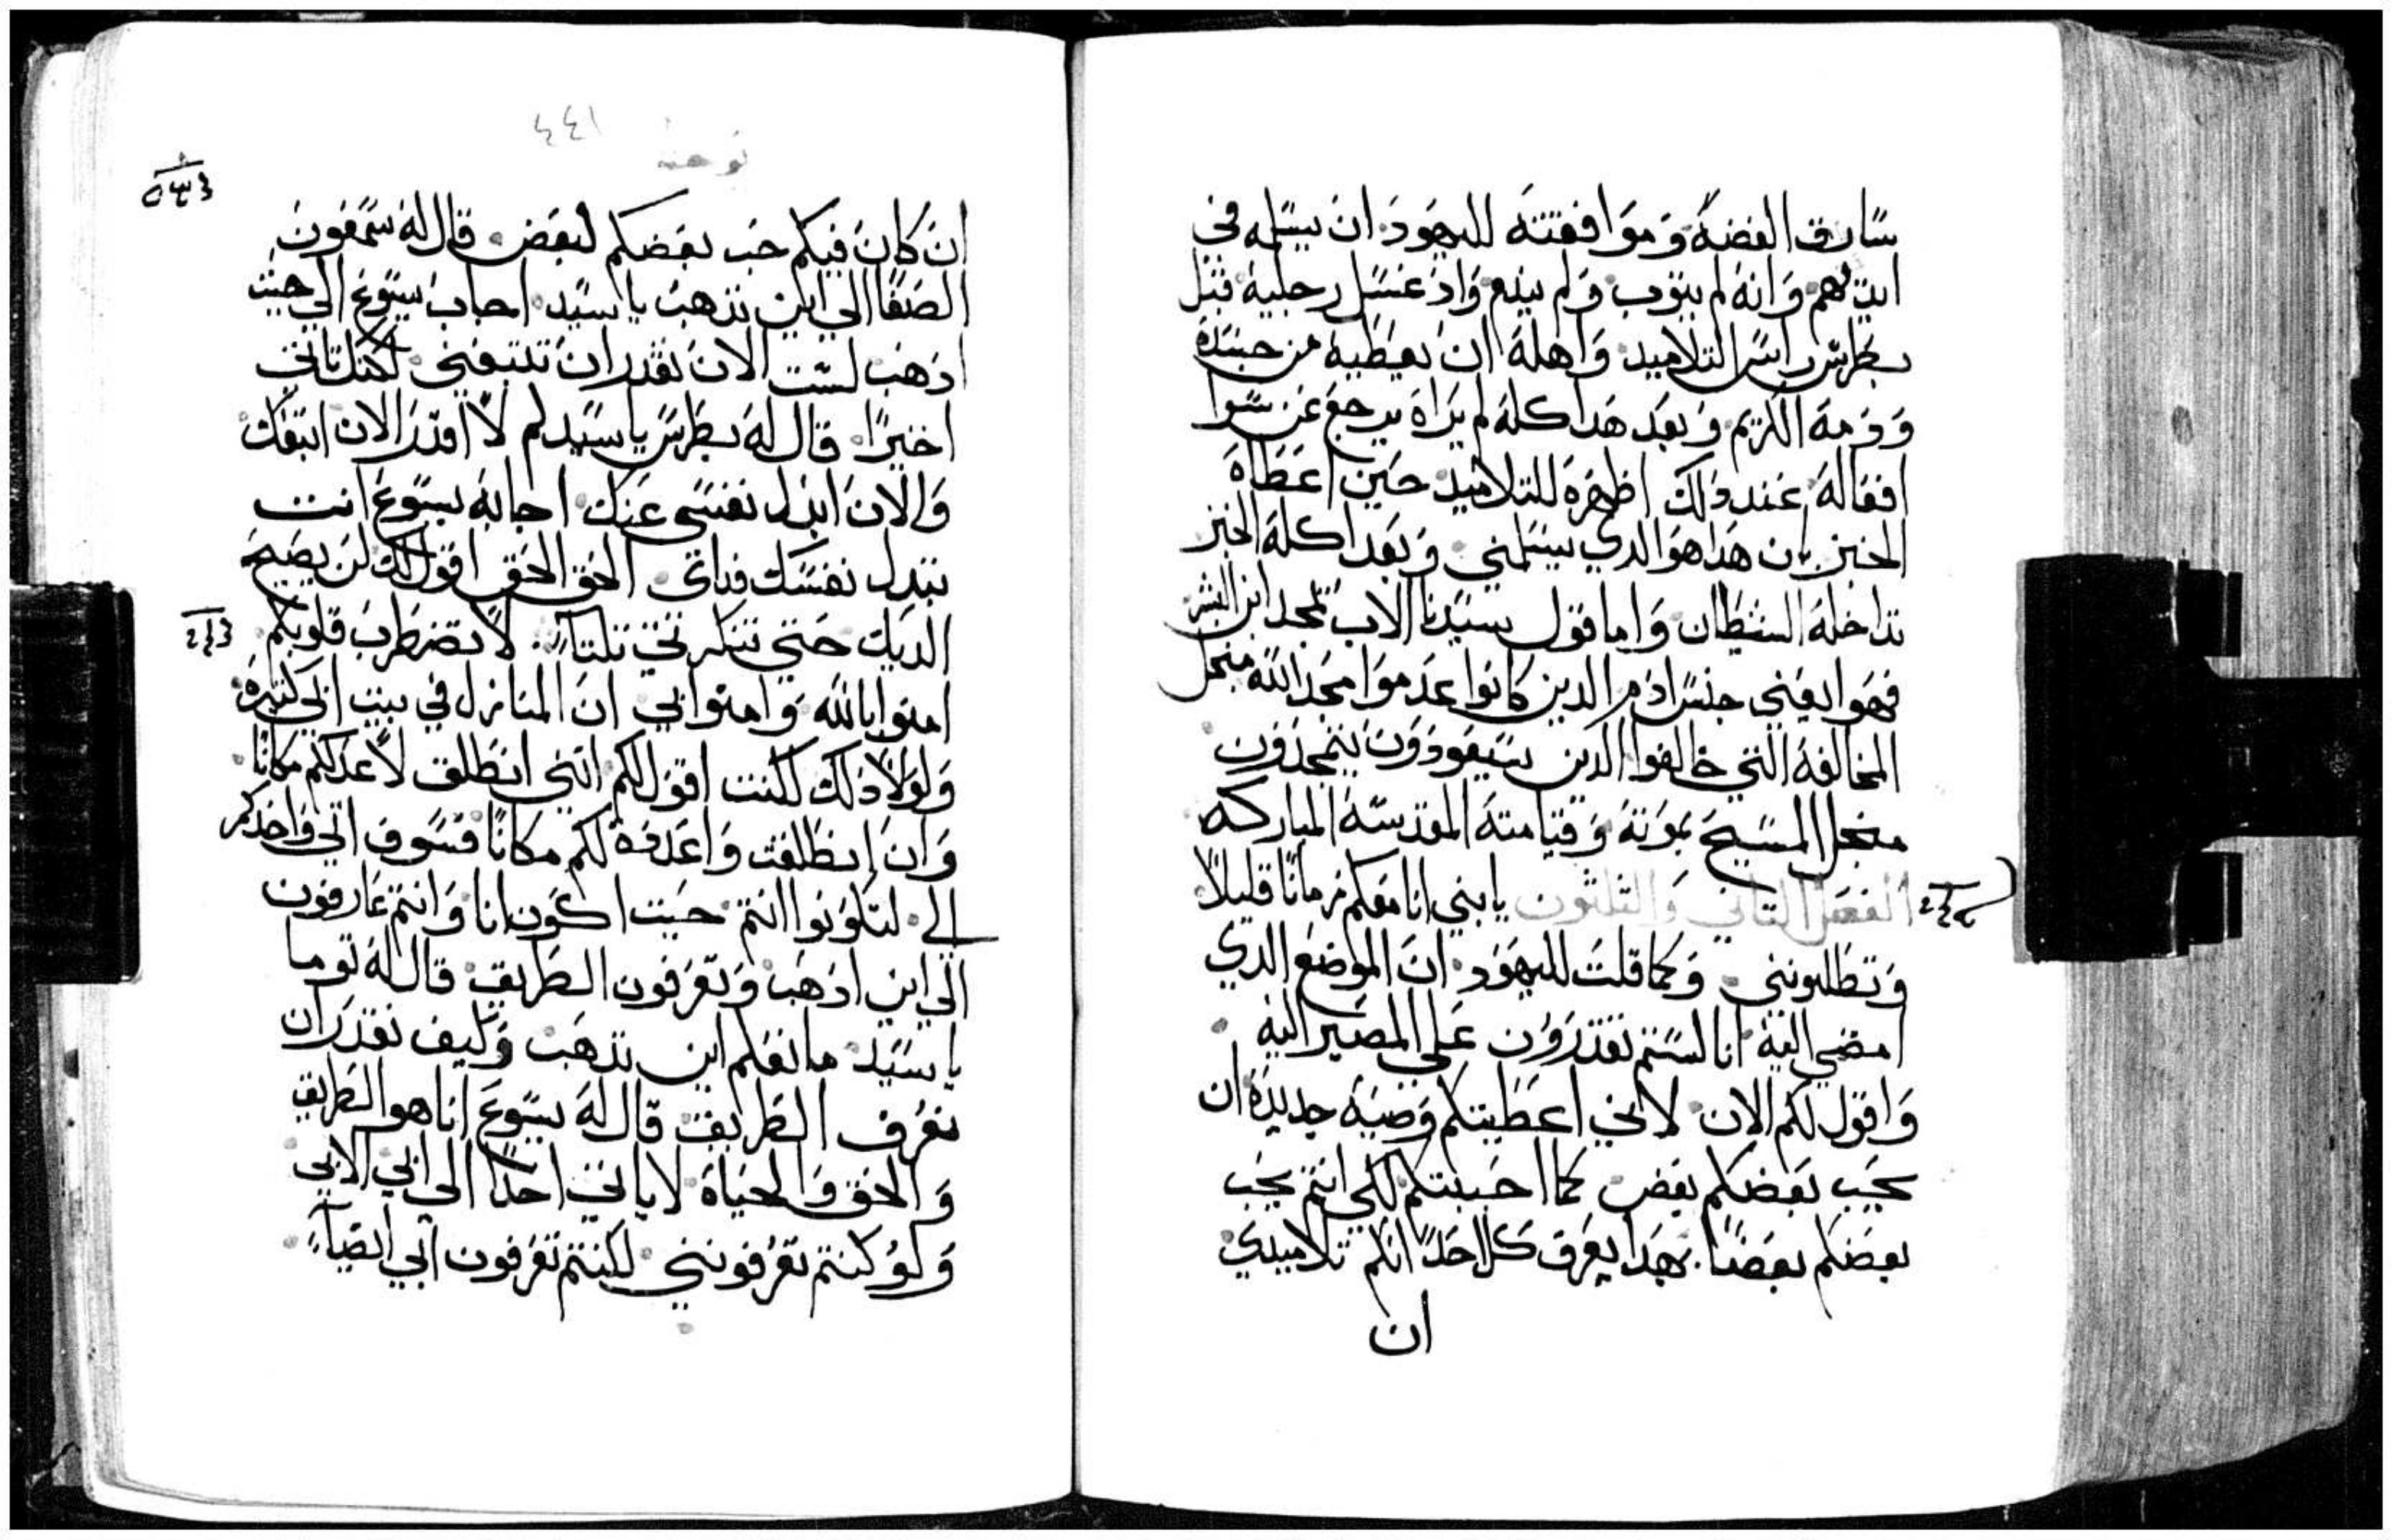 سارق الفضة وموافقته لليهود ان يسلمه في
ايديهم وانه لم يتوب ولم يندم واذ غسل رجليه قبل
بطرس راس التلاميد واهله ان يعطيه من جسده
ودمه الكريم وبعد هدا كله لم يراه يرجع عن سوا
افعاله عند دلك اظهره للتلاميد حين اعطاه
الخبز بان هدا هو الدي يسلمني وبعد اكله الخبز
تداخله الشيطان واما قول سيدنا الاب تمجد ابن البشر
فهوا يعني جنس ادم الدين كانوا عدموا مجد الله منجل
المخالفة التي خالفوا الدين سيعودون يتمجدون
منجل المسيح بموته وقيامته المقدسه المباركه
الفصل التاني والتلتون يا بني انا معكم زمانا قليلا
وتطلبونني وكما قلت لليهود ان الموضع الدي
امضي اليه انا لستم تقدرون علي المصير اليه
واقول لكم الان لاني اعطيتكم وصية جديدة ان
يحب بعضكم بعض كما احببتكم لكي انتم يحب
بعضكم بعضا بهدا يعرف كل احد انكم تلاميدي
ان
٤٤١
يوحنا
ان كان فيكم حب بعضكم لبعض قال له سمعون
الصفا الي اين تدهب يا سيد اجاب يسوع الي حيث
ادهب لست الان تقدر ان تتبعني لكنك تاتي
اخيرا قال له بطرس يا سيد لم لا اقدر الان اتبعك
والان ابدل نفسي عنك اجابه يسوع انت
تبدل نفسك فداي الحق الحق اقول لك لن يصيح
الديك حتي تنكرني تلتا لا تضطرب قلوبكم
امنوا بالله وامنوا بي ان المنازل في بيت ابي كتيرة
ولولا دلك لكنت اقول لكم انني انطلق لاعد لكم مكانا
وان انطلقت واعددة لكم مكانا فسوف اتي واخدكم
الي لتكونوا انتم حيت اكون انا وانتم عارفون
الي اين ادهب وتعرفون الطريق قال له توما
يا سيد ما نعلم اين تدهب وكيف نقدر ان
نعرف الطريق قال له يسوع انا هو الطريق
والحق والحياة لا ياتي احدا الي ابي الا بي
ولو كنتم تعرفونني لكنتم تعرفون ابي ايضا